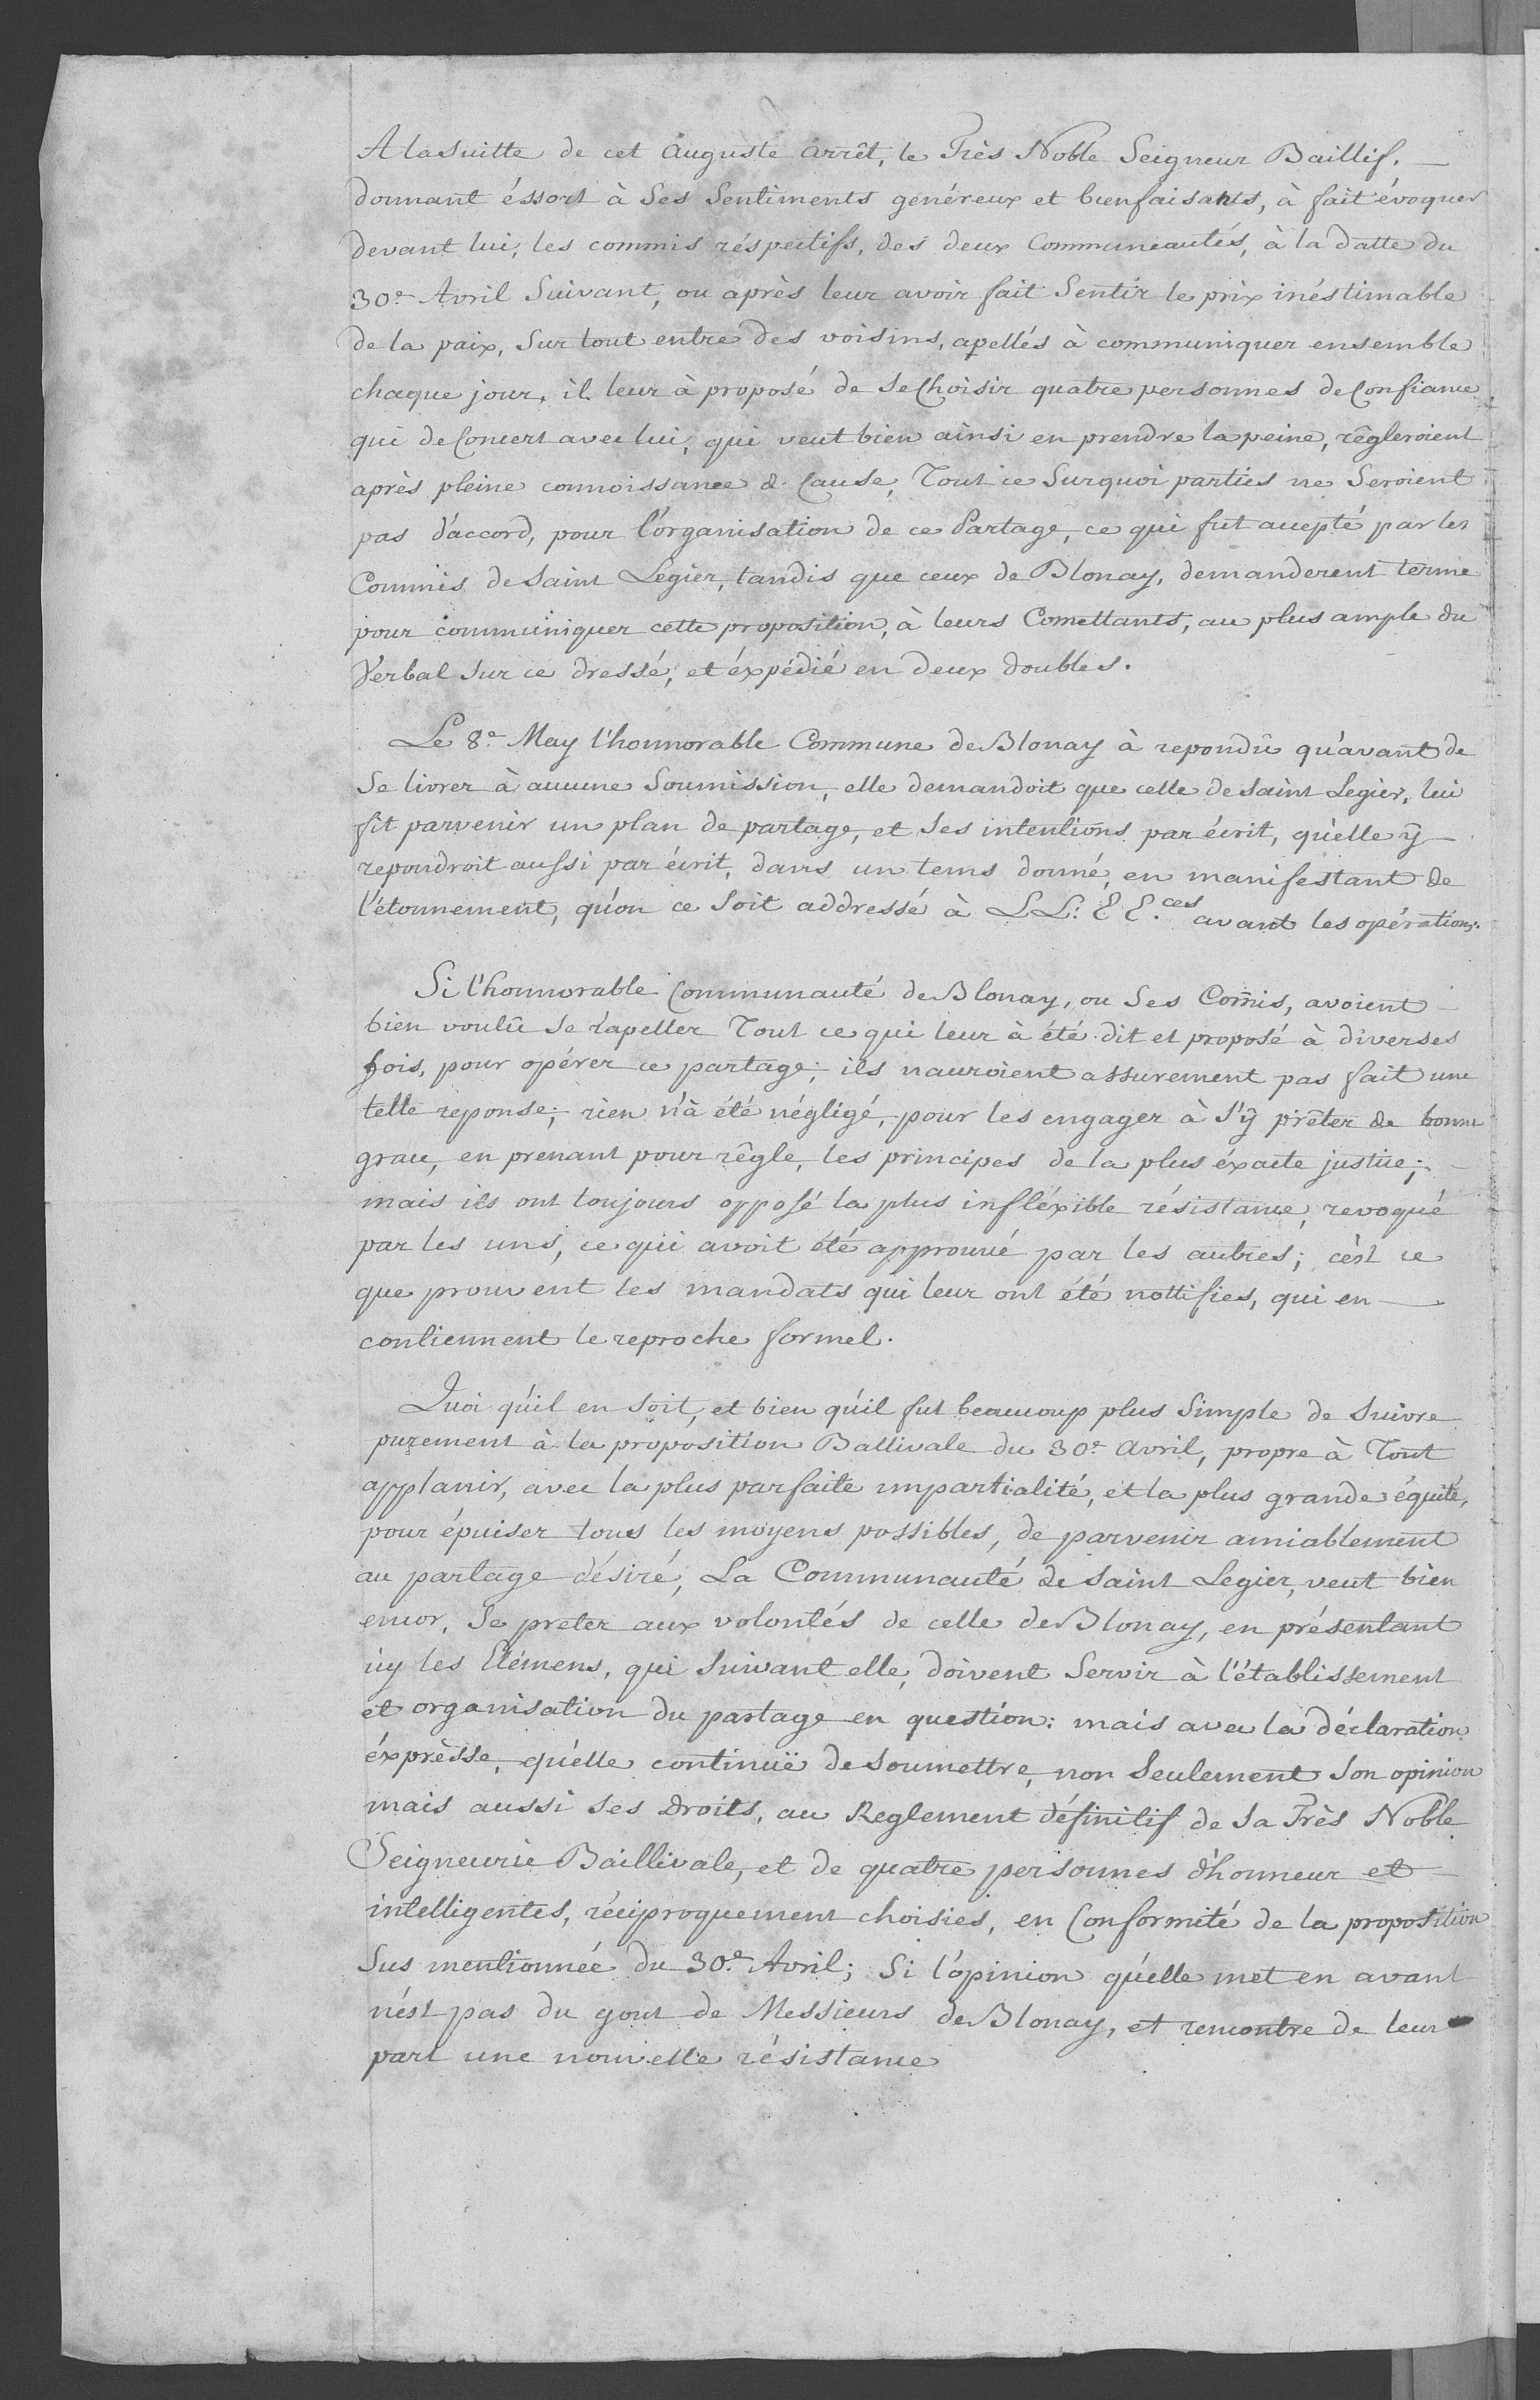 A la Suitte de cet auguste arrêt, le Très Noble Seigneur Baillif. —
donnant éssort à Ses Sentiments généreux et bienfaisants, à fait évoquer
devant lui, les commis réspectifs, des deux Communeautés, à la datte du
30e. Avril Suivant, ou après leur avoir fait Sentir le prix inéstimable
de la paix, Sur tout entre des voisins, apellés à communiquer ensemble
chaque jour, il leur à proposé de se Choisir quatre personnes de Confiance
qui de Concert avec lui, qui veut bien ainsi en prendre la peine, rêgleroient
après pleine connoissance d. Cause, Tout ce Surquoi parties ne Seroient
pas d'accord, pour l'organisation de ce Partage, ce qui fut accepté par les
Commis de Saint Legier, tandis que ceux de Blonay, demanderent terme
pour communiquer cette proposition, à leurs Comettants, au plus ample du
Verbal Sur ce dressé, et éxpédié en deux doubles.
Le 8e. May l'honnorable Commune de Blonay à repondû qu'avant de
Se livrer à aucune Soumission, elle demandoit que celle de Saint Legier, lui
fit parvenir un plan de partage, et Ses intentions par écrit, qu'elle ÿ —
repondroit aussi par écrit, dans un tems donné, en manifestant de
l'étonnement, qu'on ce Soit addressé à LL: EE.ces avant les opérations.
Si l'honnorable Communauté de Blonay, ou Ses Com̄is, avoient —
bien voulû Se rapeller Tout ce qui leur à été dit et proposé à diverses
fois, pour opérer ce partage; ils nauroient assurement pas fait une
telle reponse; rien n'à été négligé, pour les engager à S'ÿ prêter de bonne
grace, en prenant pour rêgle, les principes de la plus éxacte justice; —
mais ils ont toujours opposé la plus infléxible résistance, revoqué
par les uns, ce qui avoit été approuvé par les autres; cèst ce
que prouvent les mandats qui leur ont été nottifies, qui en —
contiennent le reproche formel.
Quoi qu'il en Soit, et bien qu'il fut beaucoup plus Simple de Suivre
purement à la proposition Ballivale du 30e. Avril, propre à Tout
applanir, avec la plus parfaite impartialité, et la plus grande équité,
pour épuiser tous les moyens possibles, de parvenir amiablement
au partage désiré, La Communauté de Saint Legier, veut bien
encor, Se preter aux volontés de celle de Blonay, en présentant
içy les Elémens, qui Suivant elle, doivent Servir à l'établissement
et organisation du partage en question: mais avec la déclaration
éxprèsse, qu'elle continuë de Soumettre, non Seulement Son opinion
mais aussi Ses Droits, au Reglement définitif de Sa Très Noble
Seigneurie Baillivale, et de quatre personnes d'honneur et —
intelligentes, réciproquement choisies, en Conformité de la proposition
Sus mentionnée du 30e. Avril; Si l'opinion qu'elle met en avant
nést pas du gout de Messieurs de Blonay, et rencontre de leur
part une nouvelle résistance